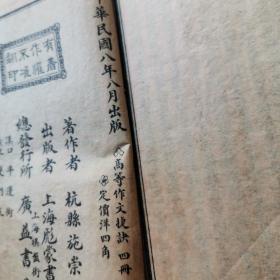 華民國八年八月出版
高等作文捷訣 四冊
定價洋四角
有著
作權
不准
翻印
著作者 杭縣施崇
出版者 上海彪蒙書
總發行所 廣益書
上海棋盤街